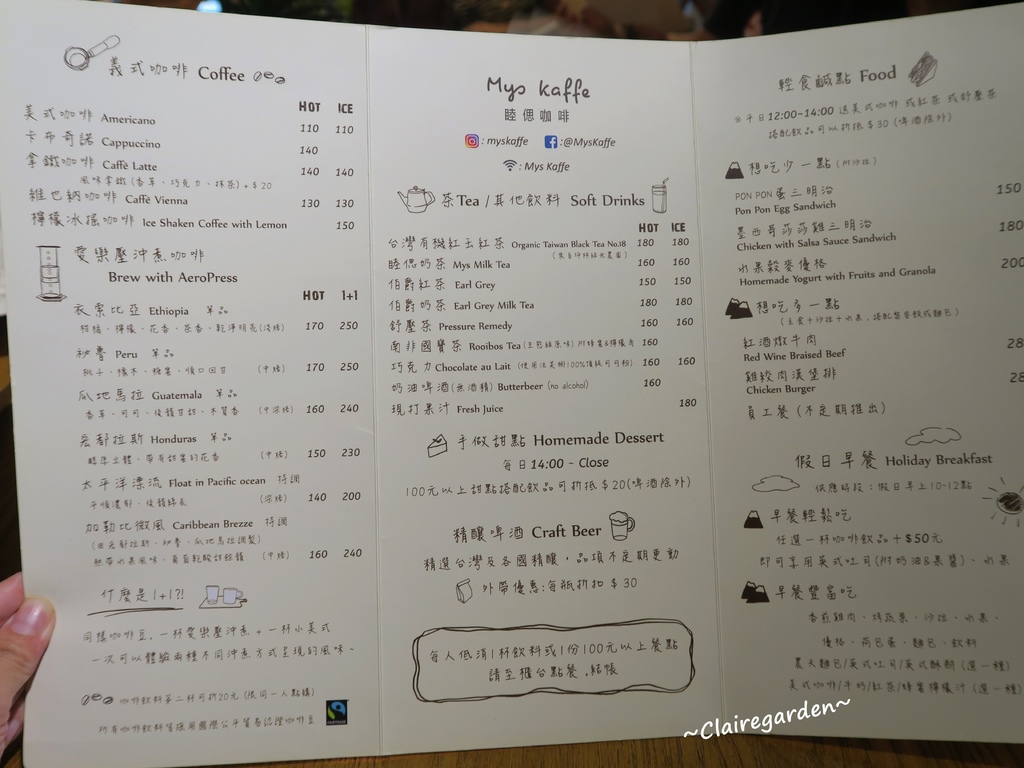 義式咖啡 Coffee
HOT ICE
美式咖啡 Americano 110 110
卡布奇諾 Cappuccino 140
拿鐵咖啡 Caffè Latte 140 140
風味拿鐵(香草、巧克力、抹茶)+$20
維也納咖啡 Caffè Vienna 130 130
檸檬冰搖咖啡 Ice Shaken Coffee with Lemon 150
愛樂壓沖煮咖啡
Brew with AeroPress
HOT 1+1
衣索比亞 Ethiopia 單品
柑橘、檸檬、花香、茶香、乾淨明亮(淺烤) 170 250
祕魯 Peru 單品
桃子、橡木、糖蜜、順口回甘 (中烤) 170 250
瓜地馬拉 Guatemala 單品
香草、可可、後韻甘甜、木質香 (中深烤) 160 240
宏都拉斯 Honduras 單品
醇厚立體、帶有甜蜜的花香 (中烤) 150 230
太平洋漂流 Float in Pacific ocean 特調
平順濃郁、後韻綿長 (深烤) 140 200
加勒比微風 Caribbean Brezze 特調
(由宏都拉斯、秘魯、瓜地馬拉調製)
熱帶水果風味、莓果乾酸甜餘韻 (中烤) 160 240
什麼是1+1?!
同樣咖啡豆,一杯愛樂壓沖煮+一杯小美式
一次可以體驗兩種不同沖煮方式呈現的風味~
咖啡飲料第二杯可折20元(限同一人點購)
所有咖啡飲料皆採用國際公平貿易認證咖啡豆
FAIRTRADE
Mys kaffe
睦偲咖啡
: myskaffe :@MysKaffe
: Mys Kaffe
茶Tea /其他飲料 Soft Drinks
HOT ICE
台灣有機紅玉紅茶 Organic Taiwan Black Tea No.18 180 180
睦偲奶茶 Mys Milk Tea 160 160
伯爵紅茶 Earl Grey 150 150
伯爵奶茶 Earl Grey Milk Tea 180 180
舒壓茶 Pressure Remedy 160 160
南非國寶茶 Rooibos Tea 160
巧克力 Chocolate au Lait 160 160
奶油啤酒(無酒精) Butterbeer (no alcohol) 160
現打果汁 Fresh Juice 180
手做甜點 Homemade Dessert
每日14:00 - Close
100元以上甜點搭配飲品可折抵$20(啤酒除外)
精釀啤酒 Craft Beer
精選台灣及各國精釀,品項不定期更動
外帶優惠:每瓶折扣 $ 30
每人低消1杯飲料或1份100元以上餐點
請至櫃台點餐,結帳
輕食鹹點 Food
※平日12:00~14:00 送美式咖啡 或紅茶 或舒壓茶
搭配飲品可以折抵$30(啤酒除外)
想吃少一點(附沙拉)
PON PON蛋三明治
Pon Pon Egg Sandwich 150
墨西哥莎莎雞三明治
Chicken with Salsa Sauce Sandwich 180
水果穀麥優格
Homemade Yogurt with Fruits and Granola 200
想吃多一點
(主食+沙拉+水果,搭配發芽飯或麵包)
紅酒燉牛肉
Red Wine Braised Beef
雞絞肉漢堡排
Chicken Burger
員工餐(不定期推出)
假日早餐 Holiday Breakfast
供應時段:假日早上10-12點
早餐輕鬆吃
任選一杯咖啡飲品+$50元
即可享用英式吐司(附奶油&果醬)、水果
早餐豐富吃
香煎雞肉、烤蔬菜、沙拉、水果、
優格、荷包蛋、麵包、飲料
農夫麵包/英式吐司/英式酥餅(選一種)
美式咖啡/牛奶/紅茶/蜂蜜檸檬汁(選一種)
~Clairegarden~